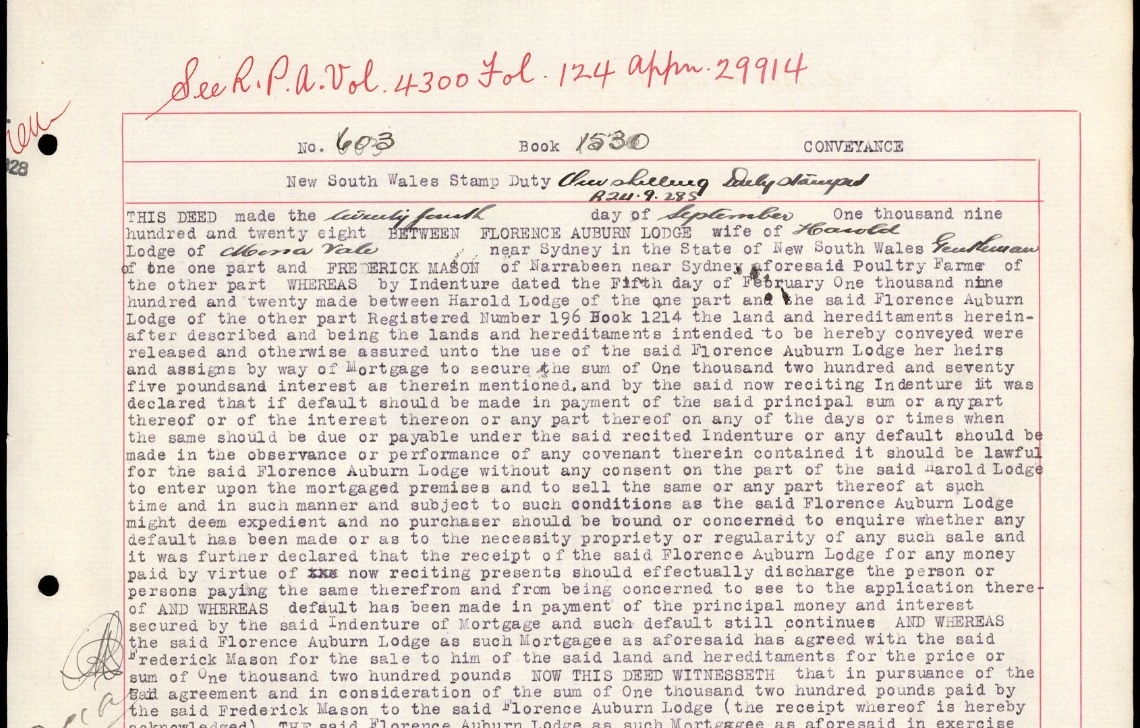 See R.P.A. Vol. 4300 Fol. 124 appn. 29914
No. 603 Book 1530 CONVEYANCE
28
New South Wales Stamp Duty One shilling Duly stamped
THIS DEED made the twenty fourth day of September One thousand nine
hundred and twenty eight BETWEEN FLORENCE AUBURN LODGE wife of Harold
Lodge of Mona Vale near Sydney in the State of New South Wales Gentleman
of one one part and FREDERICK MASON of Narrabeen near Sydney aforesaid Poultry Farme of
the other part WHEREAS by Indenture dated the Fifth day of February One thousand nine
hundred and twenty made between Harold Lodge of the one part and the said Florence Auburn
Lodge of the other part Registered Number 196 Book 1214 the land and hereditaments herein-
after described and being the lands and hereditaments intended to be hereby conveyed were
released and otherwise assured unto the use of the said Florence Auburn Lodge her heirs
and assigns by way of Mortgage to secure the sum of One thousand two hundred and seventy
five poundsand interest as therein mentioned.and by the said now reciting Indenture it was
declared that if default should be made in payment of the said principal sum or anypart
thereof or of the interest thereon or any part thereof on any of the days or times when
the same should be due or payable under the said recited Indenture or any default should be
made in the observance or performance of any covenant therein contained it should be lawful
for the said Florence Auburn Lodge without any consent on the part of the said Harold Lodge
to enter upon the mortgaged premises and to sell the same or any part thereof at such
time and in such manner and subject to such conditions as the said Florence Auburn Lodge
might deem expedient and no purchaser should be bound or concerned to enquire whether any
default has been made or as to the necessity propriety or regularity of any such sale and
it was further declared that the receipt of the said Florence Auburn Lodge for any money
paid by virtue of xxx now reciting presents should effectually discharge the person or
persons paying the same therefrom and from being concerned to see to the application there-
of AND WHEREAS default has been made in payment of the principal money and interest
secured by the said Indenture of Mortgage and such default still continues AND WHEREAS
the said Florence Auburn Lodge as such Mortgagee as aforesaid has agreed with the said
Frederick Mason for the sale to him of the said land and hereditaments for the price or
sum of One thousand two hundred pounds NOW THIS DEED WITNESSETH that in pursuance of the
said agreement and in consideration of the sum of One thousand two hundred pounds paid by
the said Frederick Mason to the said Florence Auburn Lodge (the receipt whereof is hereby
acknowledged) THE said Florence Auburn Lodge as such Mortgagee as aforesaid in exercise